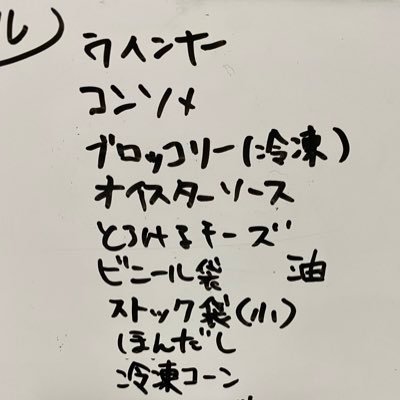 ル)
ウインナー
コンソメ
ブロッコリー(冷凍)
オイスターソース
とろけるチーズ
ビニール袋 油
ストック袋(小)
ほんだし
冷凍コーン